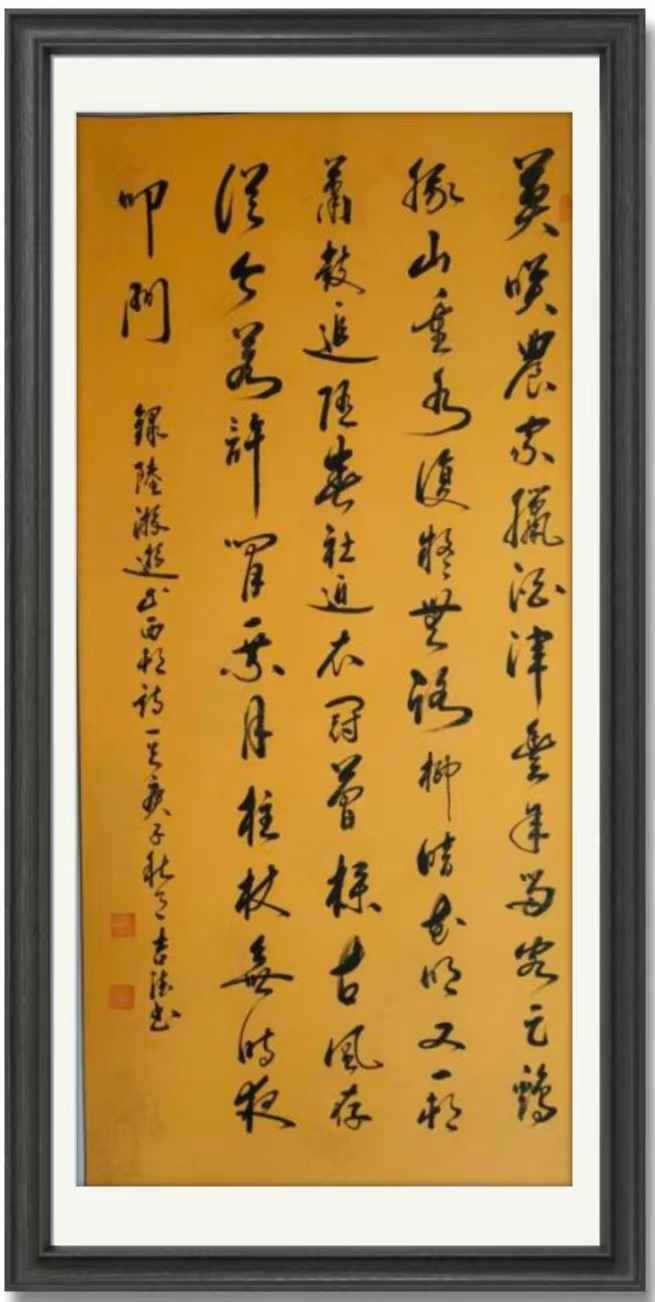 莫咲農家臘酒渾豐年留客足鷄
豚山重水復疑無路柳暗花明又一村
簫鼓追隨春社近衣冠簡樸古風存
從今若許閒乘月拄杖無時夜
叩門
錄陸游遊山西村詩一首庚子秋吉德書